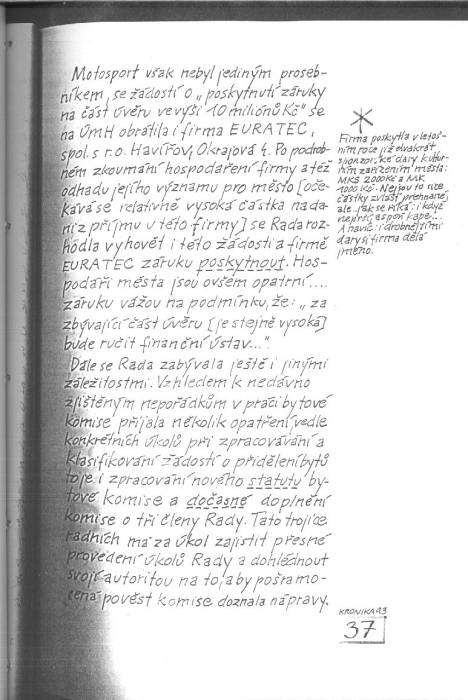 Motosport však nebyl jediným proseb-
níkem, se žádostí o „poskytnutí záruky
na část úvěru ve výši 10 miliónů Kč" se
na ÚmH obrátila i firma EURATEC,
spol. s r.o. Havířov, Okrajová 4. Po podrob-
ném zkoumání hospodaření firmy a též
odhadu jejího významu pro město [oče-
kává se relativně vysoká částka na da-
ni z příjmu u této firmy] se Rada roz-
hodla vyhovět i této žádosti a firmě
EURATEC záruku poskytnout. Hos-
podáři města jsou ovšem opatrní....
záruku vážou na podmínku, že: „za
zbývající část úvěru [je stejně vysoká]
bude ručit finanční ústav...".
Dále se Rada zabývala ještě i jinými
záležitostmi. Vzhledem k nedávno
zjištěným nepořádkům v práci bytové
komise přijala několik opatření vedle
konkretních úkolů při zpracovávání a
klasifikování žádostí o přidělení bytů
to je i zpracování nového statutu by-
tové komise a dočasné doplnění
komise o tři členy Rady. Tato trojice
radních má za úkol zajistit přesné
provedení úkolů Rady a dohlédnout
svojí autoritou na to, aby pošramo-
cená pověst komise doznala nápravy.
*
Firma poskytla v letoš-
ním roce již dvakrát
sponzorské dary kultur-
ním zařízením města:
MKS 2000 Kč a MK
1000 Kč. Nejsou to sice
částky zvlášť přehnané,
ale jak se říká: i když
neprší, aspoň kape...
A navíc: i drobnějšími
dary si firma dělá
jméno.
KRONIKA 93
37